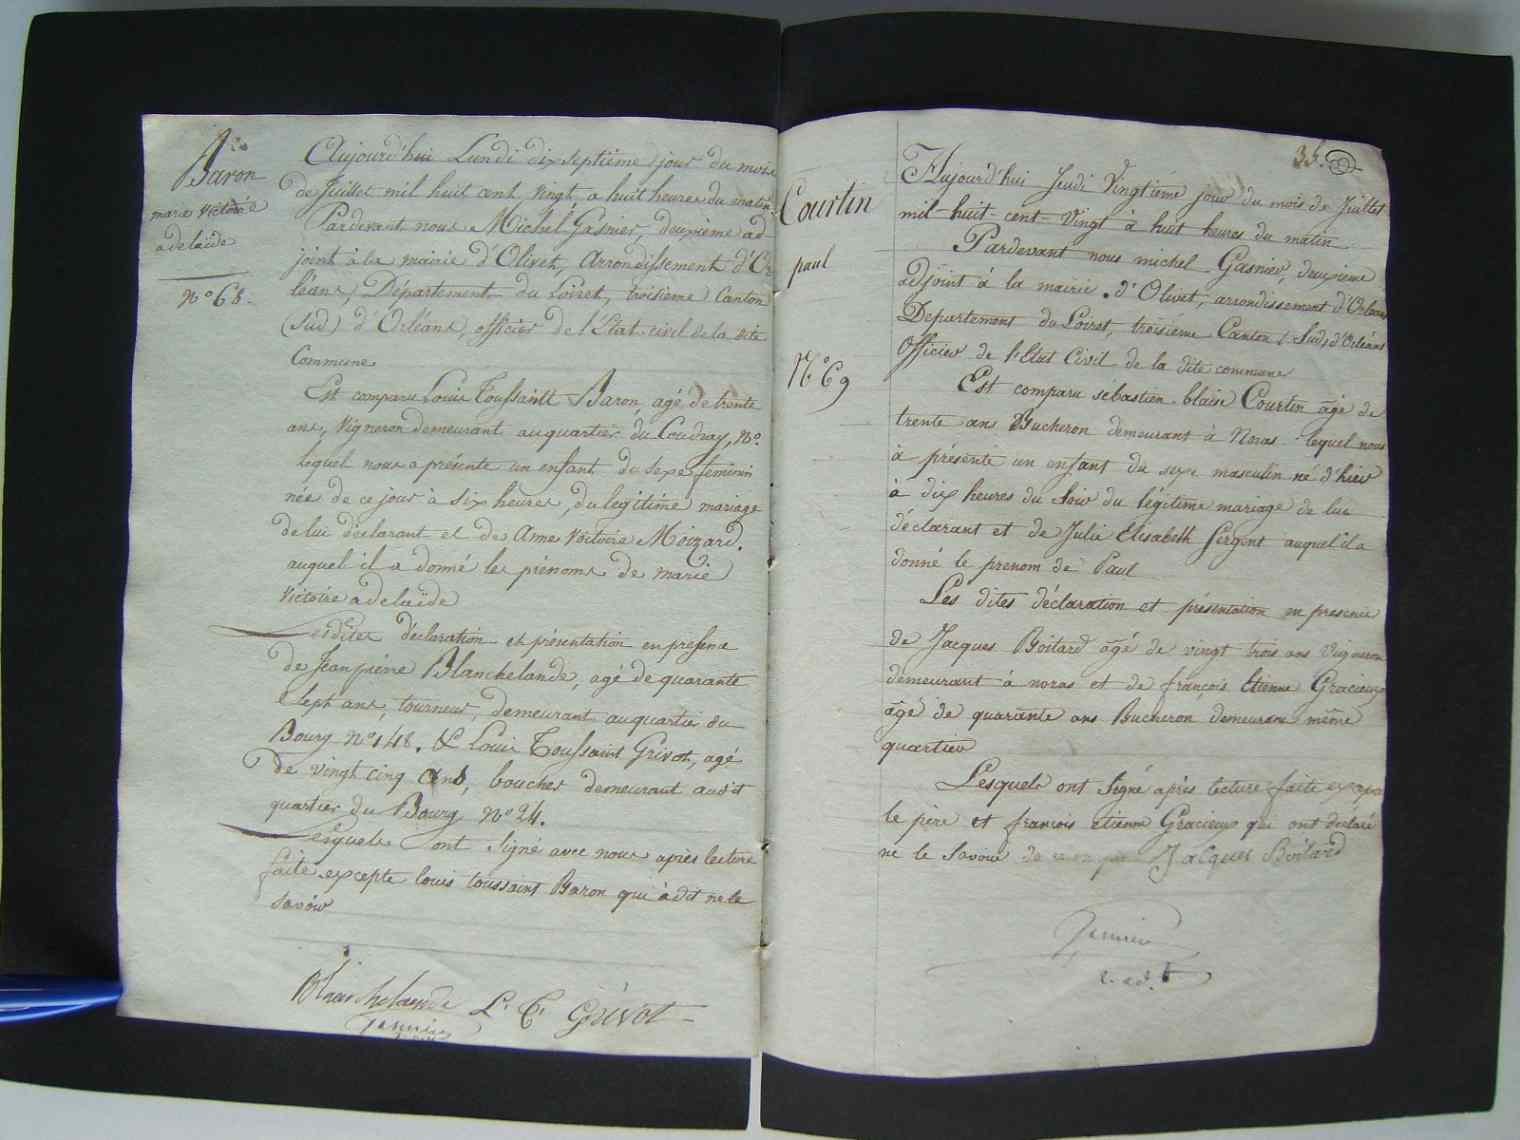 Baron
marie Victoire
adelaïde
N° 68.
Aujourd'hui Lundi dix septième jour du mois
de Juillet mil huit cent vingt, a huit heures du matin
Pardevant nous Michel Gasnier, deuxième ad-
joint à la mairie d'Olivet, Arrondissement d'Or
léans, Département du Loiret, troisième Canton
(Sud) d'Orléans, officier de l'État-civil de la dite
Commune
Est comparu Louis Toussaint Baron, agé de trente
ans, Vigneron demeurant au quartier du Coudray, N°.
lequel nous a présenté un enfant du sexe feminin
née de ce jour à six heures, du legitime mariage
de lui déclarant et de Anne Victoire Moizard.
auquel il a donné les prénoms de marie
Victoire adelaïde
Lesdites déclaration et présentation en presence
de Jean pierre Blanchelande, agé de quarante
Sept ans, tourneur, demeurant au quartier du
Bourg N° 148. & Louis Toussaint Grivot, agé
de vingt cinq ans, boucher demeurant audit
quartier du Bourg N° 24.
Lesquels ont Signé avec nous après lecture
faite excepte louis toussaint Baron qui à dit ne le
savoir
Blanchelande L. T. Grivot
Gasnier
35.
Courtin
paul
N° 69
Aujourd'hui Jeudi Vingtième jour du mois de Juillet
mil-huit-cent-Vingt à huit heures du matin
Pardevant nous michel Gasnier, deuxieme
adjoint à la mairie d'Olivet, arrondissement d'Orleans
Departement du Loiret, troisième Canton (Sud) d'Orléans
Officier de l'Etat Civil de la dite commune
Est comparu sébastien blain Courtin âgé de
trente ans Bucheron demeurant à Noras lequel nous
à présenté un enfant du sexe masculin né d'hier
à dix heures du Soir du légitime mariage de lui
déclarant et de Julie Elisabeth Sergent auquel il a
donné le prenom de Paul
Les dites déclaration et présentation en presence
de Jacques Boitard âgé de vingt trois ans Vigneron
demeurant à noras et de françois Etienne Gracieux
âgé de quarante ans Bucheron demeurant même
quartier
Lesquels ont Signé après lecture faite excepté
le père et francois etienne Gracieux qui ont declaré
ne le Savoir Jacques Boitard
Gasnier
2. ad. t